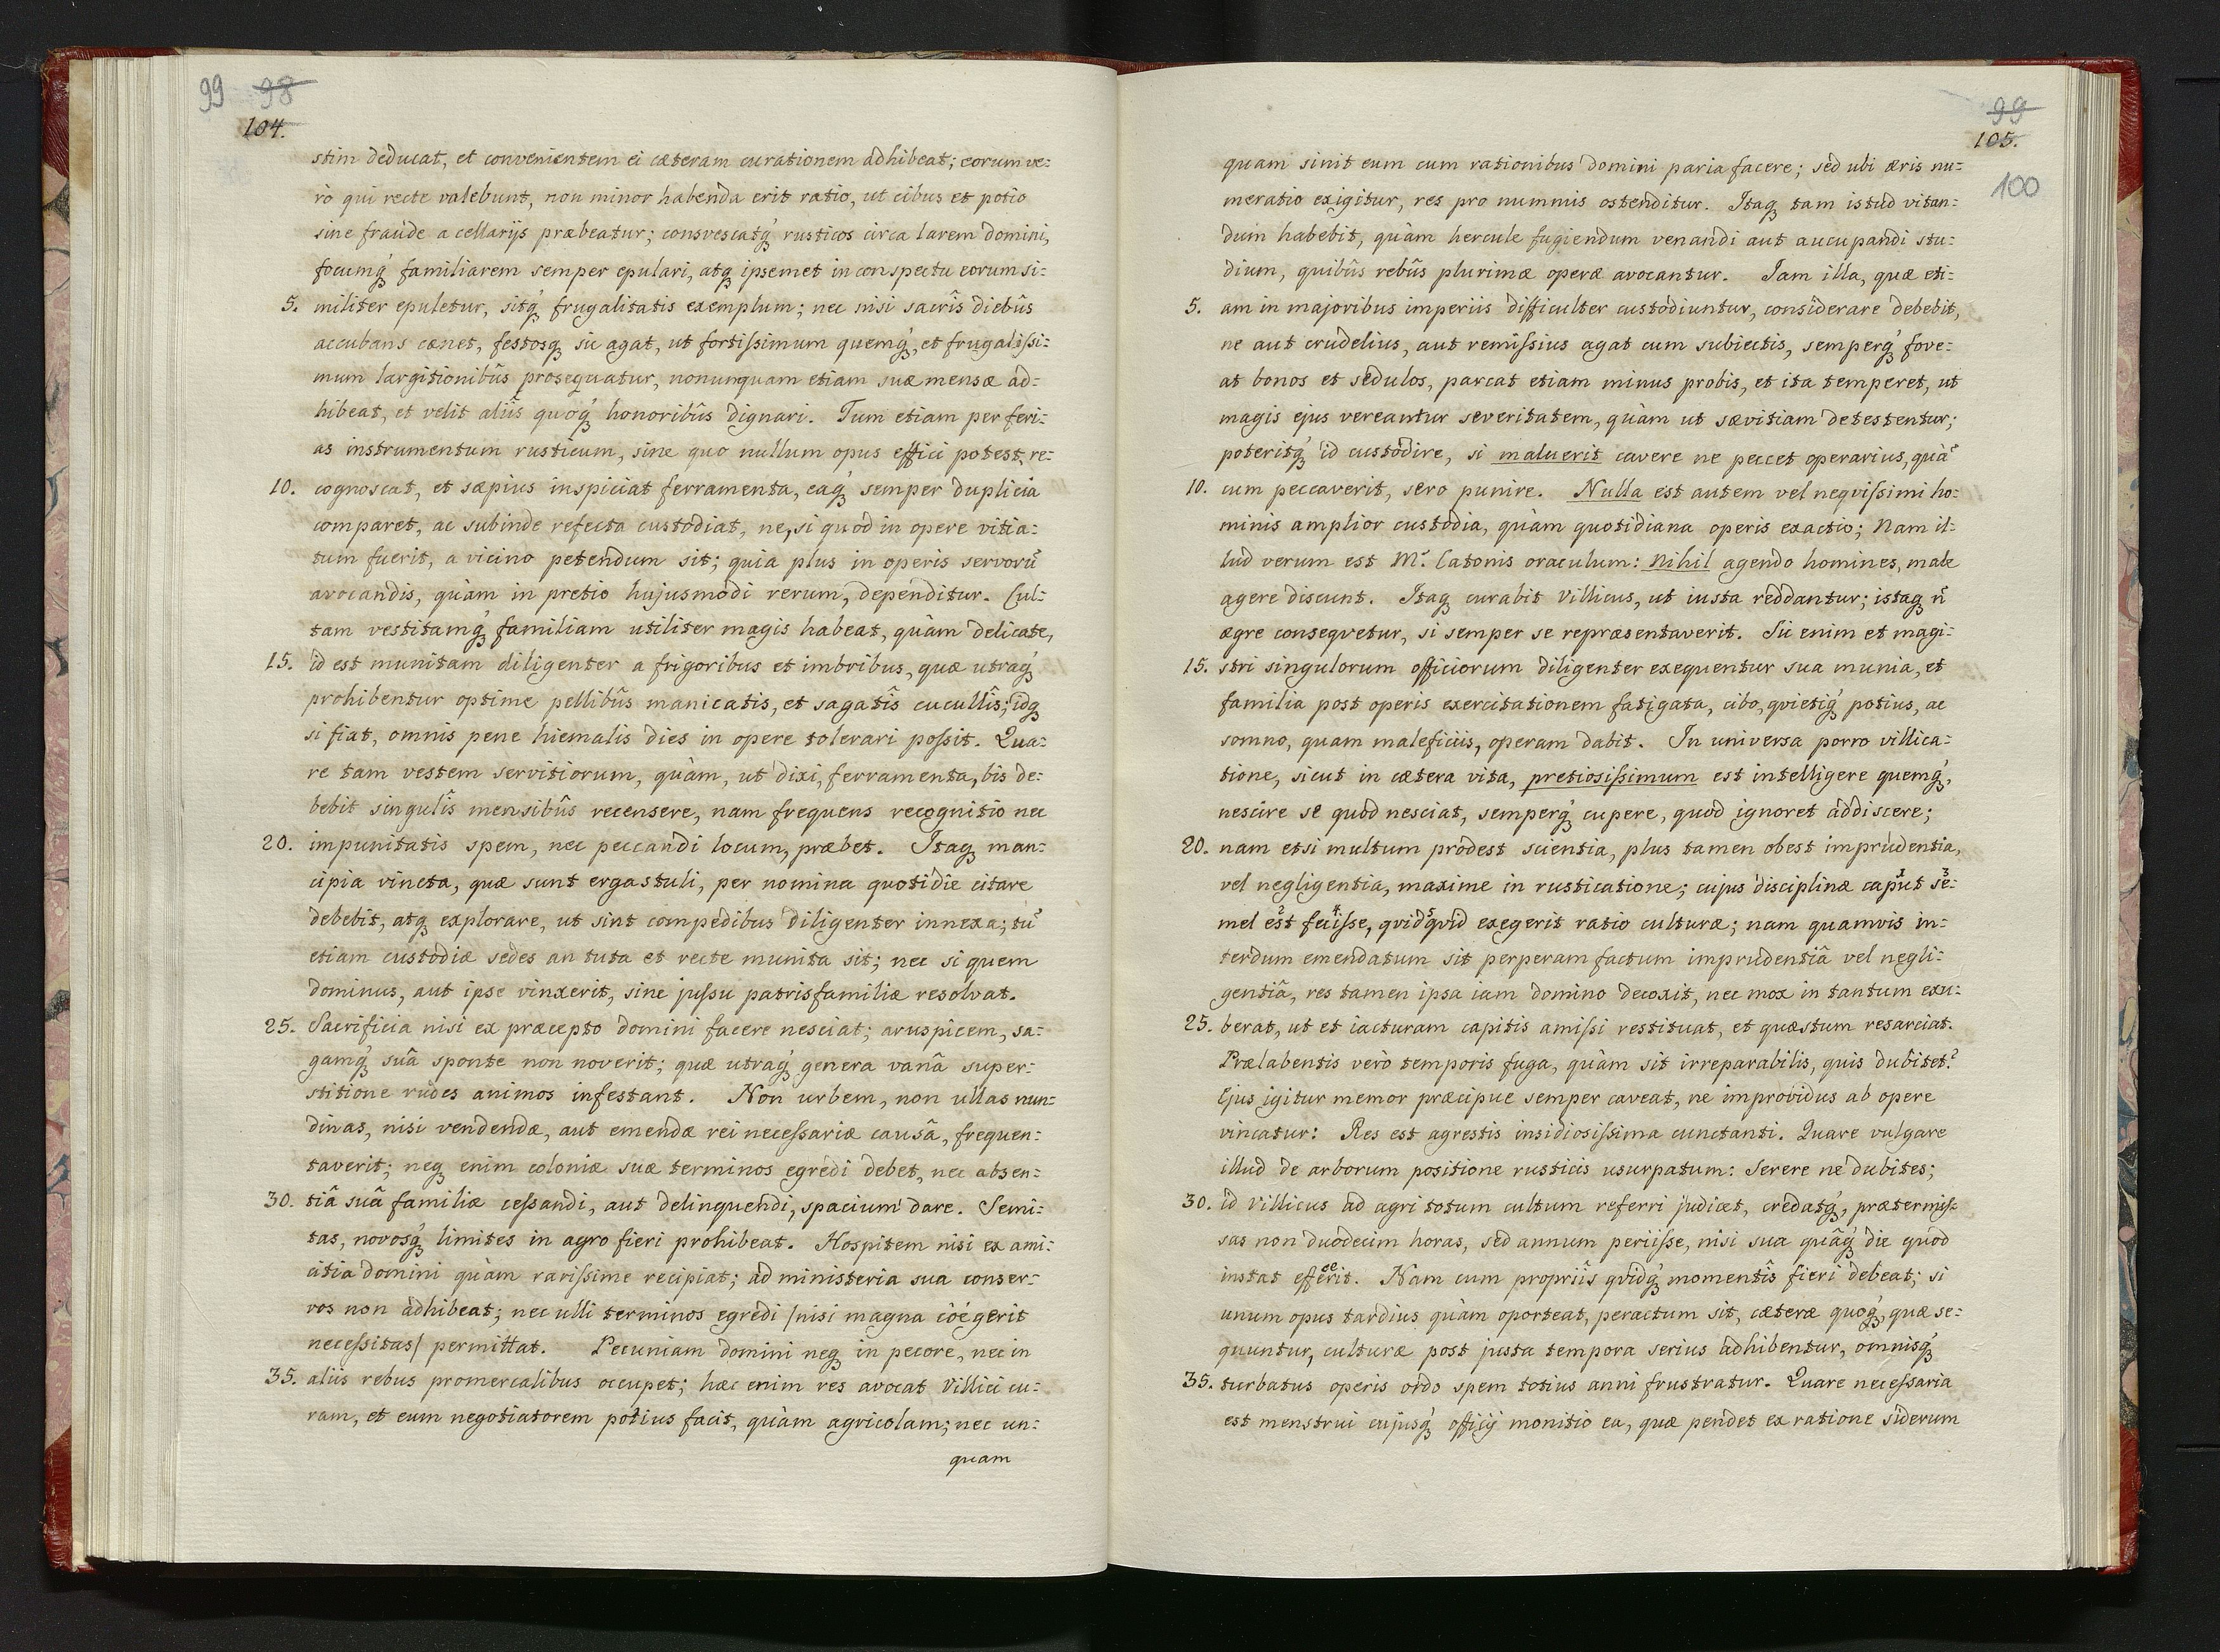 99 98
104.
stim deducat, et convenientem ei cæteram curationem adhibeat; eorum ve:
rò qui recte valebunt, non minor habenda erit ratio, ut cibus et potio
sine fraude a cellarijs præbeatur; consvescatq́ rusticos circa larem domini,
focumq́ familiarem semper epulari, atq ipsemet in conspectu eorum si:
5. militer epuletur, sitq́ frugalitatis exemplum; nec nisi sacrîs diebûs
accubans cænet, festosq sic agat, ut fortissimum quemq́, et frugalissi:
mum largitionibûs prosequatur, nonunquam etiam suæ mensæ ad:
hibeat, et velit aliîs quoq́ honoribûs dignari. Tum etiam per feri:
as instrumentum rusticum, sine quo nullum opus effici potest, re:
10. cognoscat, et sæpius inspiciat ferramenta, eaq́ semper duplicia
comparet, ac subinde refecta custodiat, ne, si quod in opere vitia:
tum fuerit, a vicino petendum sit; quia plus in operis servorũ
avocandis, quàm in pretio hujusmodi rerum, dependitur. Cul:
tam vestitamq́ familiam utiliter magis habeat, quàm delicate,
15. id est munitam diligenter a frigoribus et imbribus, quæ utraq́
prohibentur optime pellibûs manicatis, et sagatîs cucullîs; idq
si fiat, omnis pene hiemalis dies in opere tolerari possit. Qua:
re tam vestem servitiorum, quàm, ut dixi, ferramenta, bis de:
bebit singulîs mensibûs recensere, nam frequens recognitio nec
20. impunitatis spem, nec peccandi locum, præbet. Itaq man:
cipia vincta, quæ sunt ergastuli, per nomina quotidie citare
debebit, atq explorare, ut sint compedibus diligenter innexa; tũ
etiam custodiæ sedes an tuta et recte munita sit; nec si quem
dominus, aut ipse vinxerit, sine jussu patrisfamiliæ resolvat.
25. Sacrificia nisi ex præcepto domini facere nesciat; aruspicem, sa:
gamq́ suâ sponte non noverit; quæ utraq́ genera vanâ super:
stitione rudes animos infestant. Non urbem, non ullas nun:
dinas, nisi vendendæ, aut emendæ rei necessariæ causâ, frequen:
taverit; neq enim coloniæ suæ terminos egredi debet, nec absen:
30. tiâ suâ familiæ cessandi, aut delinquendi, spacium dare. Semi:
tas, novosq́ limites in agro fieri prohibeat. Hospitem nisi ex ami:
citia domini quàm rarissime recipiat; ad ministeria sua conser:
vos non adhibeat; nec ulli terminos egredi /nisi magna cöégerit
necessitas/ permittat. Pecuniam domini neq in pecore, nec in
35. aliis rebus promercalibus occupet; hæc enim res avocat Villici cu:
ram, et eum negotiatorem potius facit, quàm agricolam; nec un:
quam
99
105.
100
quam sinit eum cum rationibus domini paria facere; sed ubi æris nu:
meratio exigitur, res pro nummis ostenditur. Itaq tam istud vitan:
dum habebit, quàm hercule fugiendum venandi aut aucupandi stu:
dium, quibûs rebûs plurimæ operæ avocantur. Iam illa, quæ eti:
5. am in majoribus imperiis difficulter custodiuntur, considerare debebit,
ne aut crudelius, aut remissius agat cum subiectis, semperq́ fove:
at bonos et sedulos, parcat etiam minus probis, et ita temperet, ut
magis ejus vereantur severitatem, quàm ut sævitiam detestentur;
poteritq́ id custodire, si maluerit cavere ne peccet operarius, quã
10. cum peccaverit, sero punire. Nulla est autem vel neqvissimi ho:
minis amplior custodia, quàm quotidiana operis exactio; Nam il:
lud verum est M. Catonis oraculum: Nihil agendo homines, male
agere discunt. Itaq curabit Villicus, ut iusta reddantur; istaq ñ
ægre conseqvetur, si semper se repræsentaverit. Sic enim et magi:
15. stri singulorum officiorum diligenter exequentur sua munia, et
familia post operis exercitationem fatigata, cibo, qvietiq́ potius, ac
somno, quam maleficiis, operam dabit. In universa porro villica:
tione, sicut in cætera vita, pretiosissimum est intelligere quemq́,
nescire se quod nesciat, semperq́ cupere, quod ignoret addiscere;
20. nam etsi multum prodest scientia, plus tamen obest imprudentia,
vel negligentia, maxime in rusticatione; cujus disciplinæ caput se:
1 3
mel est fecisse, qvidqvid exegerit ratio culturæ; nam quamvis in:
2 4 5
terdum emendatum sit perperam factum imprudentiâ vel negli:
gentiâ, res tamen ipsa iam domino decoxit, nec mox in tantum exu:
25. berat, ut et iacturam capitis amissi restituat, et quæstum resarciat.
Prælabentis verò temporis fuga, quàm sit irreparabilis, quis dubitet?
Ejus igitur memor præcipue semper caveat, ne improvidus ab opere
vincatur: Res est agrestis insidiosissima cunctanti. Quare vulgare
illud de arborum positione rusticis usurpatum: Serere ne dubites;
30. id Villicus ad agri totum cultum referri judicet, credatq́, prætermis:
sas non duodecim horas, sed annum periisse, nisi sua quâq́ die quod
instat efferit. Nam cum propriîs qvidq́ momentîs fieri debeat; si
ce
unum opus tardius quàm oporteat, peractum sit, cæteræ quoq́, quæ se:
quuntur, culturæ post justa tempora serius adhibentur, omnisq́
35. turbatus operis ordo spem totius anni frustratur. Quare necessaria
est menstrui cujusq́ officij monitio ea, quæ pendet ex ratione siderum